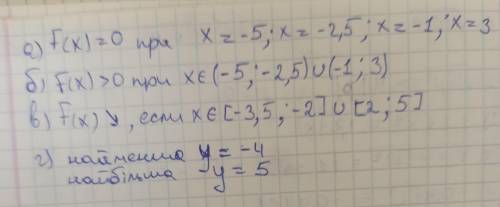 а) f(x)=0 при x=-5; x=-2,5; x=-1; x=3
б) f(x)>0 при x∈(-5;-2,5)∪(-1;3)
в) f(x)↘, если x∈[-3,5;-2]∪[2;5]
г) найменша y=-4
найбільша y=5